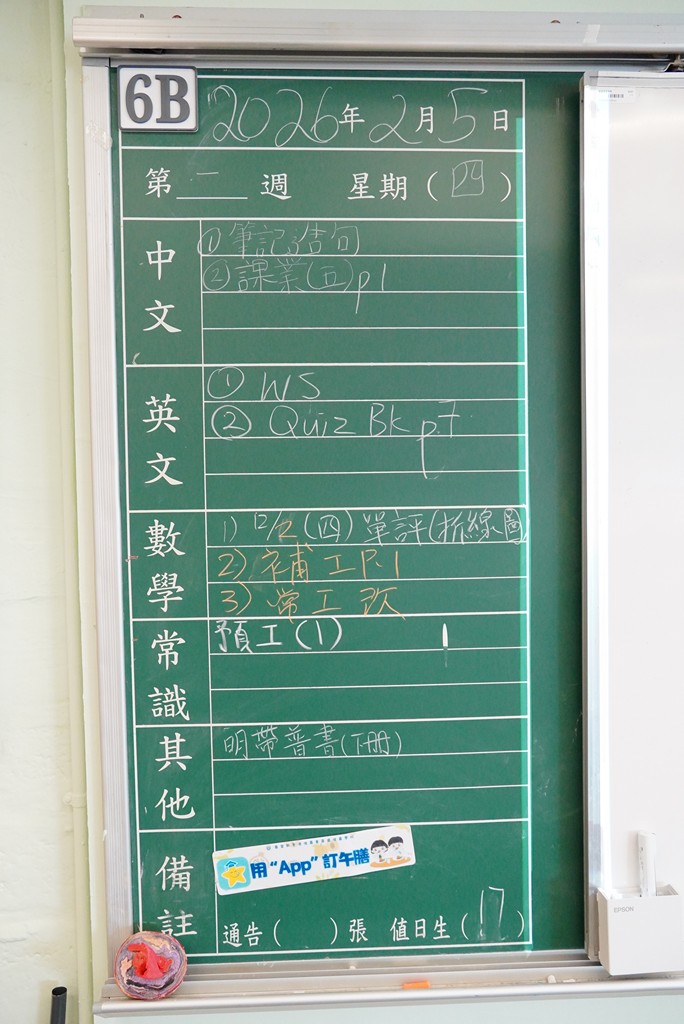 6B
2026年2月5日
第一週 星期(四)
中文
①筆記及告句
②課業(五)p1
英文
① WS
② Quiz Bk p.7
數學
1) 12/2 (四) 單評(折線圖)
2) 補工P.1
3) 常工改
常識
預工(1)
其他
明帶普書(下冊)
備註
用“App”訂午膳
通告( )張 值日生(17)
EPSON